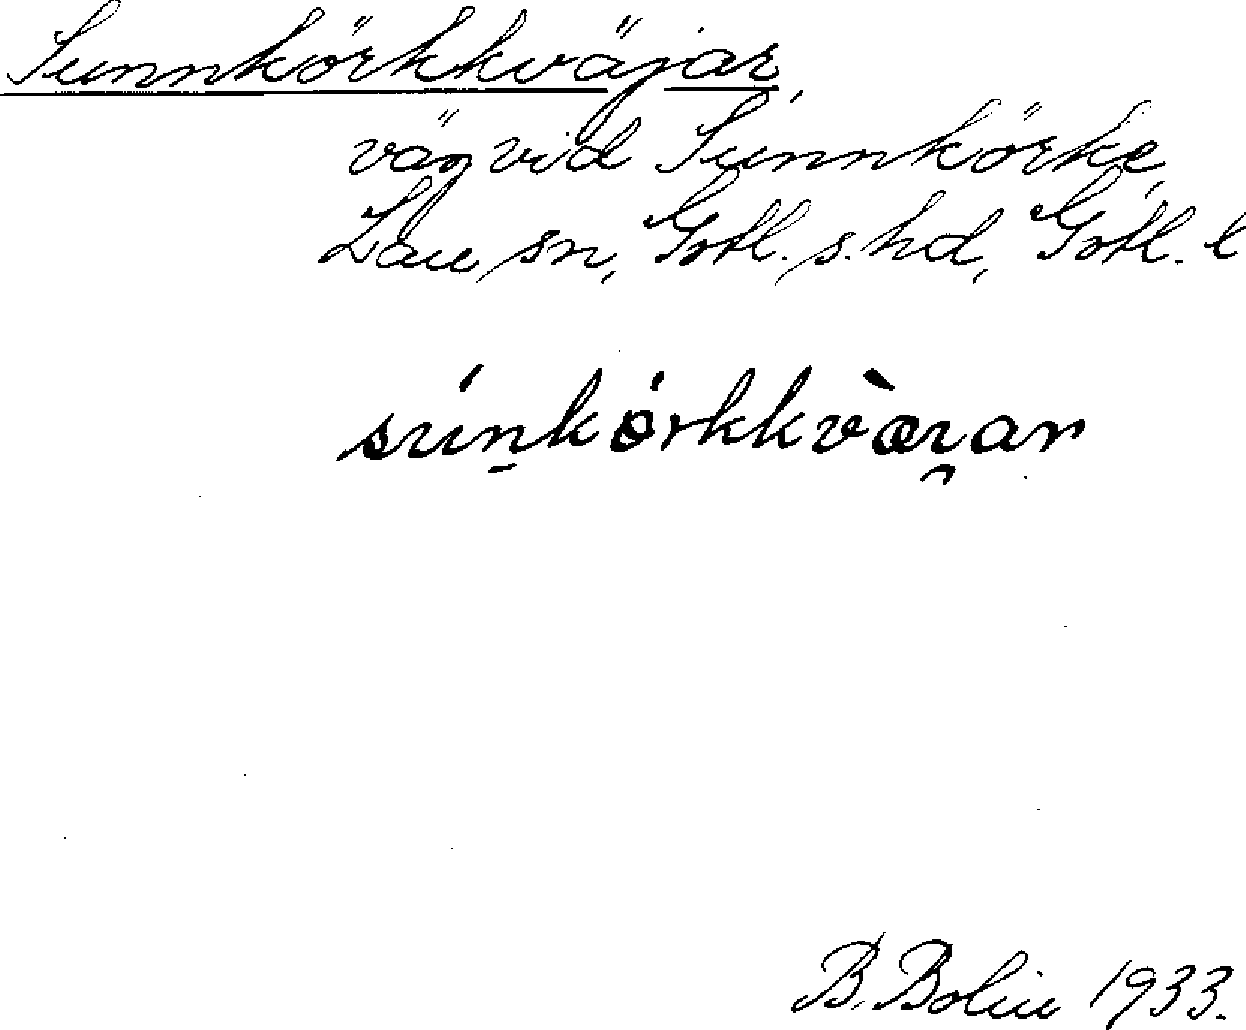 Sunnkörkkväjar,
väg vid Sunnkörke,
Lau sn, Gotl. s. hd, Gotl. l
B. Bolin 1933.